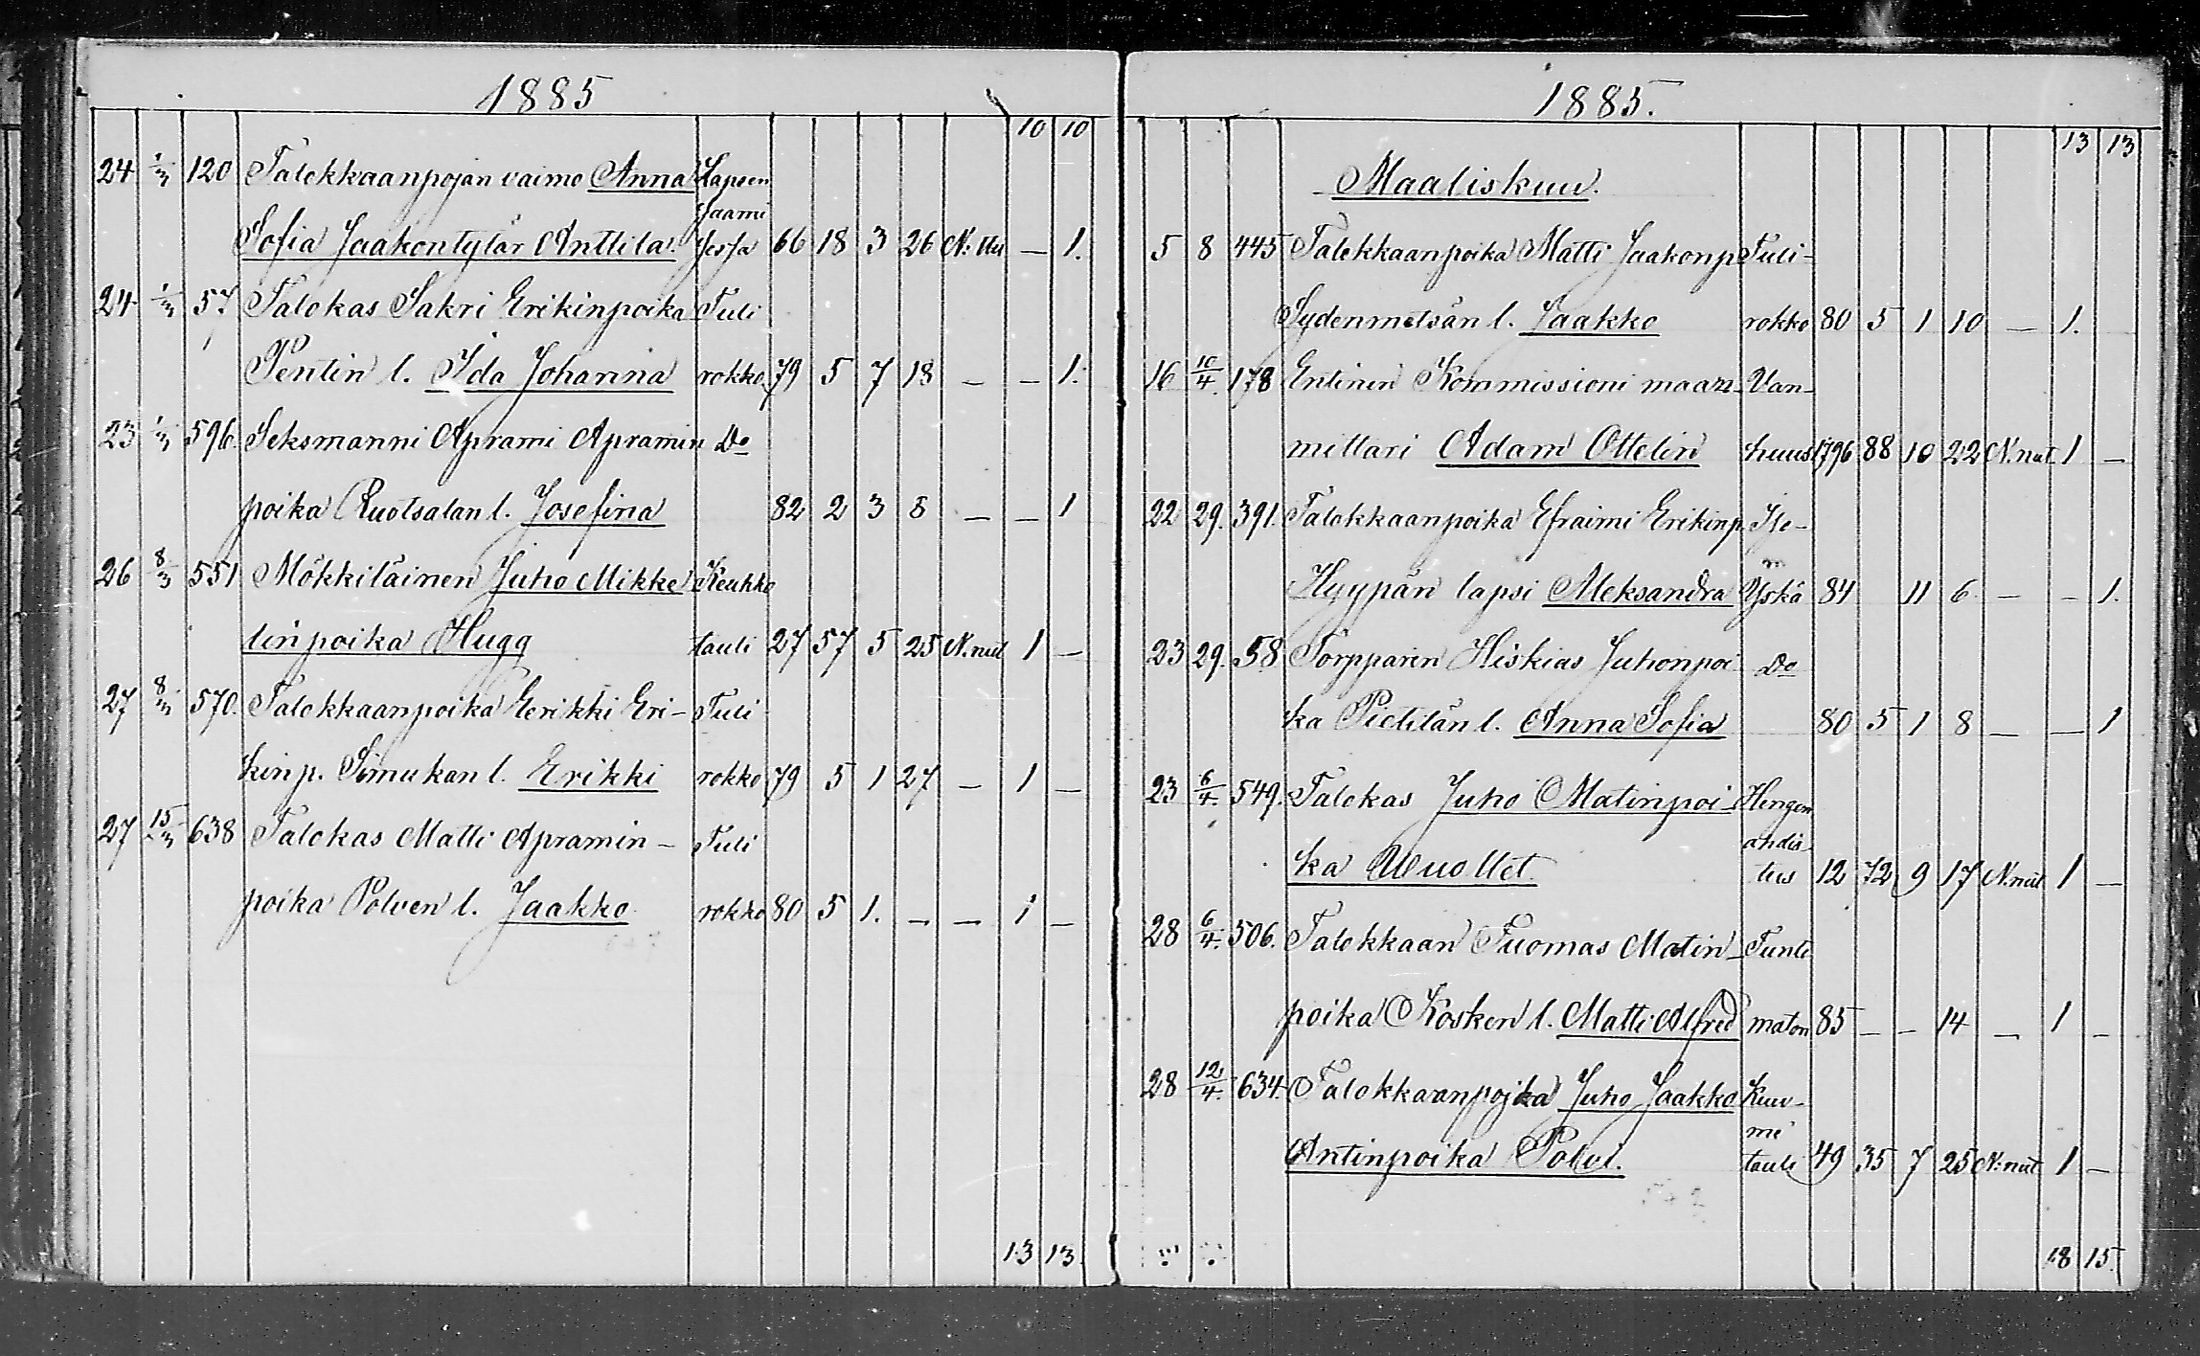 1885
10 10
24 1/3 120 Talokkaanpojan vaimo Anna Lapsen
saami
Sofia Jaakontytär Anttila. 66 18 3 26 — 1.
24 1/3 57 Talokas Sakri Erikinpoika Tuli
Pentin l. Ida Johanna rokko 79 5 7 18 — — 1.
23 1/3 596. Seksmanni Aprami Apramin Do
poika Ruotsalan l. Josefina 82 2 3 8 — — 1
26 8/3 551 Mökkiläinen Juho Mikke Keuhko
linpoika Hugg tauti 27 57 5 25 N. nut 1 —
27 8/3 570. Talokkaanpoika Eerikki Eri- Tuli
kinp. Simukan l. Erikki rokko 79 5 1 27 — 1 —
27 15/3 638 Talokas Matti Apramin- Tuli
poika Polven l. Jaakko rokko 80 5 1. — — 1 —
13 13.
1885.
13 13
Maaliskuu.
5 8 445 Talokkaanpoika Matti Jaakonp. Tuli-
Sydenmetsän l. Jaakko rokko 80 5 1 10 — 1.
16 10/4. 178 Entinen Kommissioni maan- Van-
mittari Adam Ottelin huus 1796 88 10 22 N. nut 1 —
22 29. 391. Talokkaanpoika Efraimi Erikinp.
Hyypän lapsi Aleksandra Yskä 84 11 6 — — 1.
23 29. 58 Torpparin Hiskias Juhonpoi Do
ka Pietilän l. Anna Sofia 80 5 1 8 — — 1
23 6/4. 549. Talokas Juho Matinpoi Hengen
ahdis
ka tus 12 72 9 17 N. nut 1 —
28 6/4. 506. Talokkaan Tuomas Matin- Tunte
poika Kosken l. Matti Alfred maton 85 — — 14 — 1 —
28 12/4. 634. Talokkaanpojka Juho Jaakko Kuu-
me
Antinpoika Polvi. tauti 49 35 7 25 N. nut 1 —
18 15.